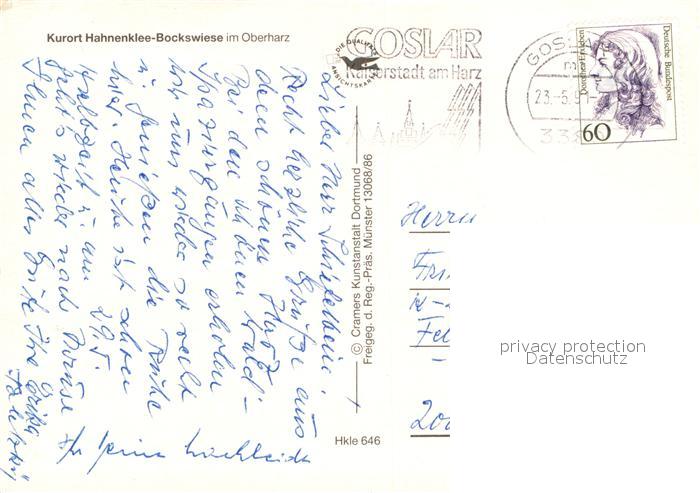 Kurort Hahnenklee-Bockswiese im Oberharz
DIE QUALITÄTS
ANSICHTSKARTE
GOSLAR
Kaiserstadt am Harz
GOSLAR
23.-5.9
338
Deutsche Bundespost
Dorothea Erxleben
60
Lieber Herr
Recht herzliche Grüße aus
dem schönen Harz.
Bei den schönen Wald-
Spaziergängen erholen
wir uns wieder so recht
u. genießen die Ruhe
hier. Heute ist schon
Halbzeit u. am 29.5.
geht's wieder nach Hause
Ihnen alles Gute Ihre
© Cramers Kunstanstalt Dortmund
Freigeg. d. Reg.-Präs. Münster 13068/86
Herrn
Hkle 646
privacy protection
Datenschutz